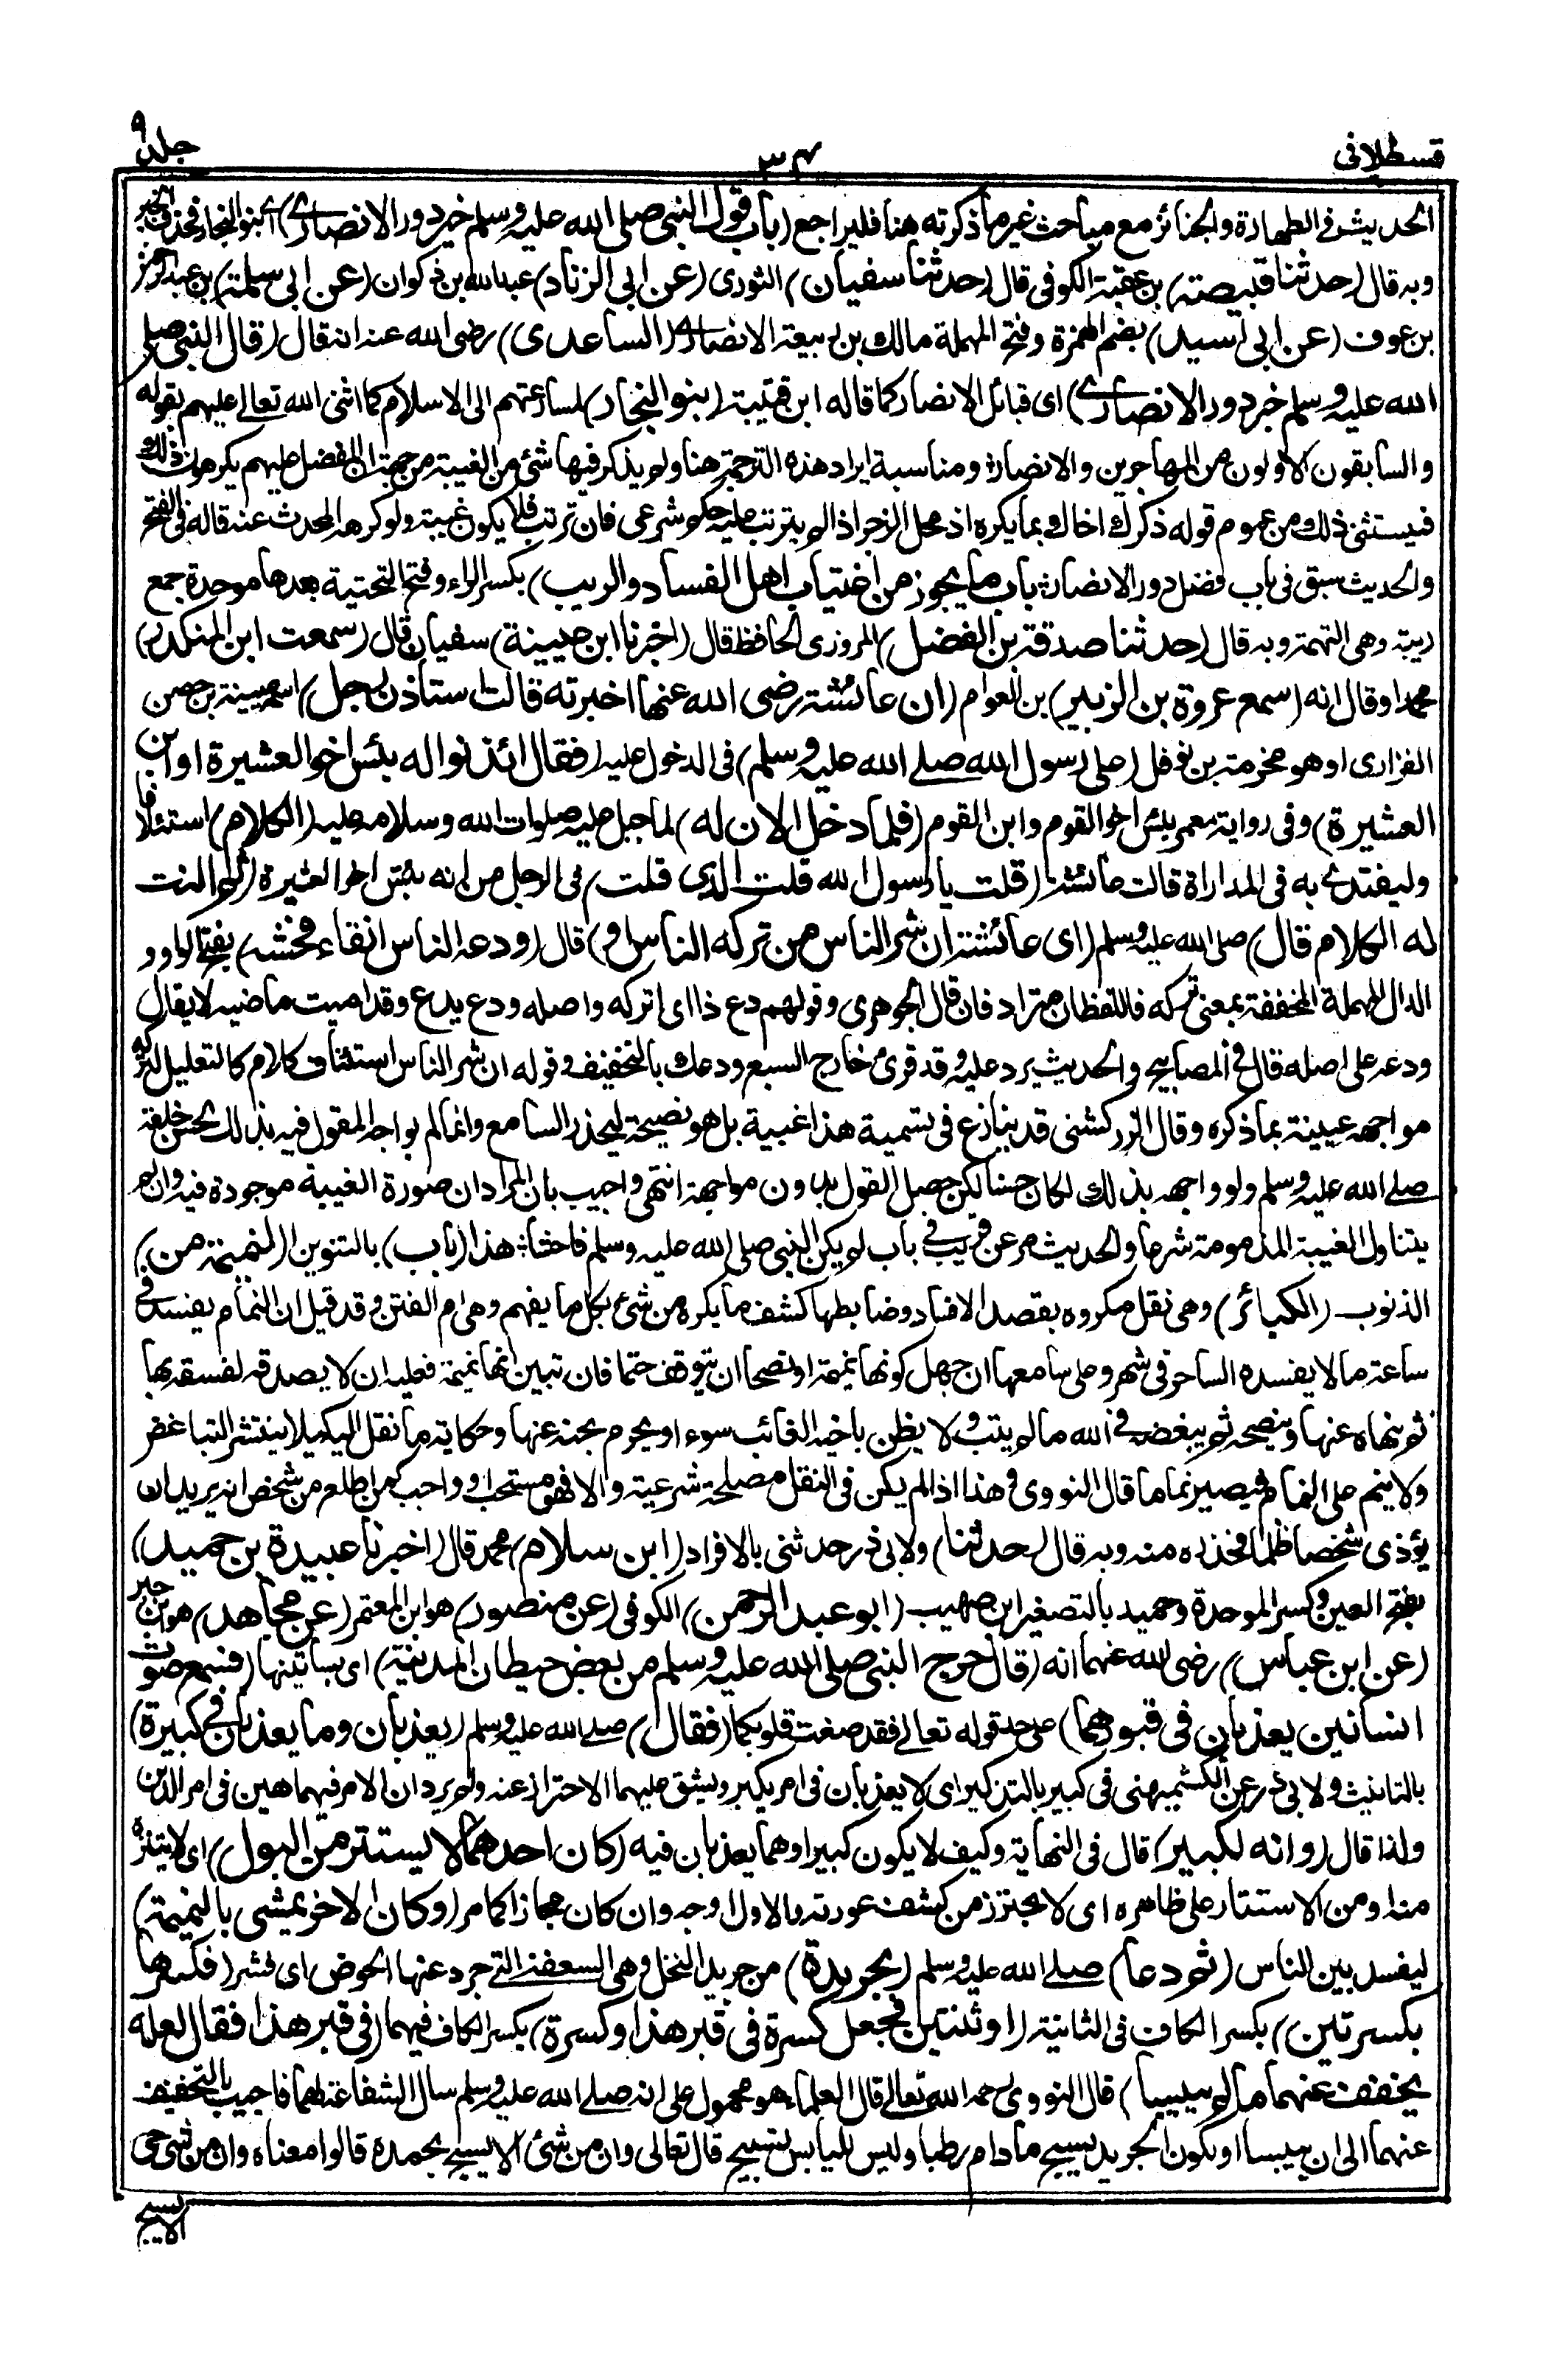 قسطلاني
٣٤
جلد ٩
الحديث في الطهارة والجنائز مع مباحث غير ما ذكرته هنا فليراجع (باب قول النبي صلى الله عليه وسلم خير دور الانصار) اي بنو النجار فحذف الخبر
وبه قال (حدثنا قبيصة) بن عقبة الكوفي قال (حدثنا سفيان) الثوري (عن ابي الزناد) عبد الله بن ذكوان (عن ابي سلمة) بن عبد الرحمن
بن عوف (عن ابي اسيد) بضم الهمزة وفتح المهملة مالك بن ربيعة الانصاري (الساعدي) رضي الله عنه انه قال (قال النبي صلى
الله عليه وسلم خير دور الانصار) اي قبائل الانصار كما قاله ابن قتيبة (بنو النجار) لمسارعتهم الى الاسلام كما اثنى الله تعالى عليهم بقوله
والسابقون الاولون من المهاجرين والانصار ومناسبة ايراد هذه الترجمة هنا ولم يذكر فيها شئ من الغيبة من جهة ان المفضل عليهم يكرهون ذلك
فيستثنى ذلك من عموم قوله ذكرك اخاك بما يكره اذ محل الزجر اذا لم يترتب عليه حكم شرعي فان ترتب فلا يكون غيبة ولو كرهه المحدث عنه قاله في الفتح
والحديث سبق في باب فضل دور الانصار باب ما يجوز من اغتياب اهل الفساد والريب) بكسر الراء وفتح التحتية بعدها موحدة جمع
ريبة وهي التهمة وبه قال (حدثنا صدقة بن الفضل) المروزي الحافظ قال (اخبرنا ابن عيينة) سفيان قال (سمعت ابن المنكدر)
محمدا وقال انه (سمع عروة بن الزبير) بن العوام (ان عائشة رضي الله عنها اخبرته قالت استاذن رجل) اسمه عيينة بن حصن
الفزاري او هو مخرمة بن نوفل (على رسول الله صلى الله عليه وسلم) في الدخول عليه (فقال ائذنوا له بئس اخو العشيرة او ابن
العشيرة) وفي رواية معمر بئس اخو القوم وابن القوم (فلما دخل الان له) لما جبل عليه صلوات الله وسلامه عليه (الكلام) استئلافا
وليقتدى به في المداراة قالت عائشة (قلت يا رسول الله قلت الذي قلت) في الرجل من انه بئس اخو العشيرة (ثم النت
له الكلام قال) صلى الله عليه وسلم (اي عائشة ان شر الناس من تركه الناس او) قال (ودعه الناس اتقاء فحشه) بفتح الواو و
الدال المهملة المخففة بمعنى تركه فاللفظان مترادفان قال الجوهري وقولهم دع ذا اي اتركه واصله ودع يدع وقد اميت ماضيه لا يقال
ودعه على اصله قال في المصابيح والحديث يرد عليه وقد قرئ خارج السبع ودعك بالتخفيف وقوله ان شر الناس استئناف كلام كالتعليل لتركه
مواجهة عيينة بما ذكره وقال الزركشي قد ينازع في تسمية هذا غيبة بل هو نصيحة ليحذر السامع وانما لم يواجه المقول فيه بذلك لحسن خلقه
صلى الله عليه وسلم ولو واجهه بذلك لكان حسنا لكن حصل القول بدون مواجهة انتهى واجيب بان المراد ان صورة الغيبة موجودة فيه وان لم
يتناول الغيبة المذمومة شرعا والحديث مر عن قريب في باب لم يكن النبي صلى الله عليه وسلم فاحشا هذا (باب) بالتنوين (النميمة من)
الذنوب (الكبائر) وهي نقل مكروه بقصد الافساد وضابطها كشف ما يكره من شئ بكل ما يفهم وهي ام الفتن وقد قيل ان النمام يفسد في
ساعة ما لا يفسده الساحر في شهر وعلى سامعها ان جهل كونها نميمة او نصحا ان يتوقف حتما فان تبين انها نميمة فعليه ان لا يصدقه لفسقه بها
ثم ينهاه عنها وينصحه ثم يبغضه في الله ما لم يتب ولا يظن باخيه الغائب سوء او يحرم بحثه عنها وحكاية ما نقل اليه كيلا ينتشر التباغض
ولا ينم على النمام فيصير نماما قال النووي وهذا اذا لم يكن في النقل مصلحة شرعية والا فهو مستحب او واجب كمن اطلع من شخص انه يريد ان
يؤذي شخصا ظلما فحذره منه وبه قال (حدثنا) ولابي ذر حدثني بالافراد (ابن سلام) محمد قال (اخبرنا عبيدة بن حميد)
بفتح العين وكسر الموحدة وحميد بالتصغير ابن صهيب (ابو عبد الرحمن) الكوفي (عن منصور) هو ابن المعتمر (عن مجاهد) هو ابن جبر
(عن ابن عباس) رضي الله عنهما انه (قال خرج النبي صلى الله عليه وسلم من بعض حيطان المدينة) اي بساتينها (فسمع صوت
انسانين يعذبان في قبورهما) على حد قوله تعالى فقد صغت قلوبكما (فقال) صلى الله عليه وسلم (يعذبان وما يعذبان في كبيرة)
بالتانيث ولابي ذر عن الكشميهني في كبير بالتذكير اي لا يعذبان في امر يكبر ويشق عليهما الاحتراز عنه ولم يرد ان الامر فيهما هين في امر الدين
ولذا قال (وانه لكبير) قال في النهاية وكيف لا يكون كبيرا وهما يعذبان فيه (كان احدهما لا يستتر من البول) اي لا يتنزه
منه او من الاستتار على ظاهره اي لا يحترز من كشف عورته والاول اوجه وان كان مجازا كما مر (وكان الاخر يمشي بالنميمة)
ليفسد بين الناس (ثم دعا) صلى الله عليه وسلم (بجريدة) من جريد النخل وهي السعفة التي جرد عنها الخوص اي قشر (فكسرها
بكسرتين) بكسر الكاف في الثانية (او ثنتين فجعل كسرة في قبر هذا وكسرة) بكسر الكاف فيهما (في قبر هذا فقال لعله
يخفف عنهما ما لم ييبسا) قال النووي رحمه الله تعالى قال العلماء هو محمول على انه صلى الله عليه وسلم سال الشفاعة لهما فاجيب بالتخفيف
عنهما الى ان ييبسا او لكون الجريد يسبح ما دام رطبا وليس لليابس تسبيح قال تعالى وان من شئ الا يسبح بحمده قالوا معناه وان من شئ حي
الا يسبح